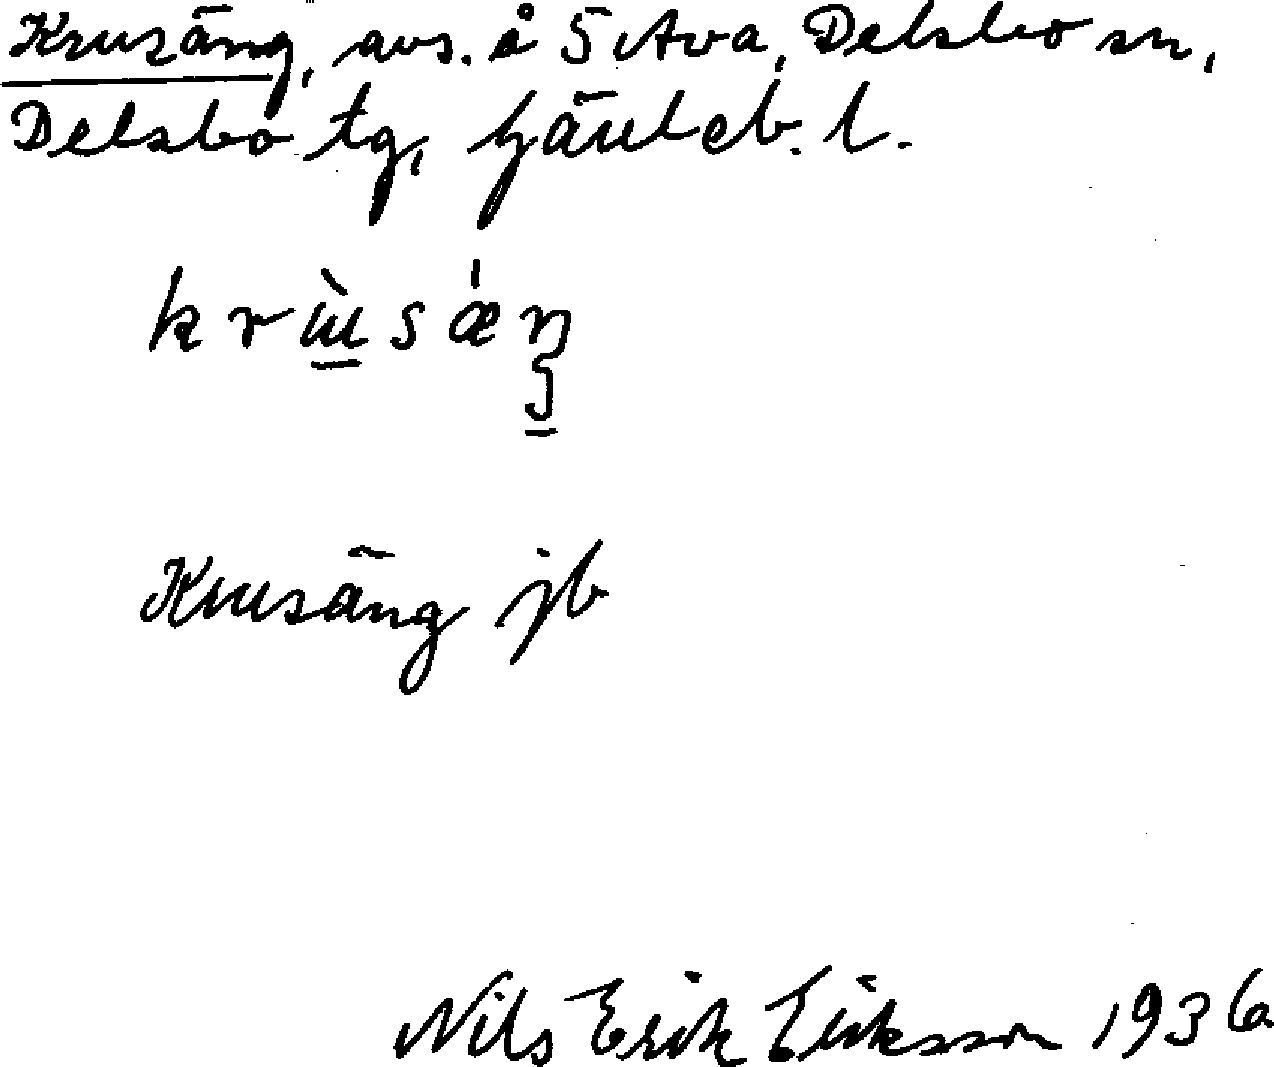 Krusäng, avs. å 5 Ava, Delsbo sn,
Delsbo tg, Gävleb. l.
Krusäng jb
Nils Erik Eriksson 1936